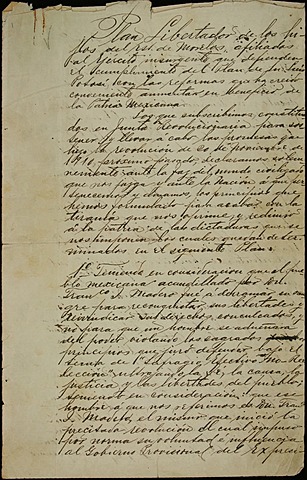 Plan Libertador de los hi-
jos del Est. de Morelos, afiliados
al Ejército insurgente que defienden
el cumplimiento del Plan de San Luis
Potosí, con las reformas que ha creido
conveniente aumentar en beneficio de
la Patria Mexicana.
Los que subscribimos, constitui-
dos en Junta Revolucionaria, para sos-
tener y llevar a cabo las promesas que
hizo la revolucion de 20 de Noviembre de
1910, próximo pasado, declaramos solem-
nemente ante la faz del mundo civilizado
que nos juzga y ante la Nacion a que per-
tenecemos y amamos, los principios que
hemos formulado para acabar con la
tiranía que nos oprime y redimir
á la patria de las dictaduras que se
nos imponen, los cuales quedan deter-
minados en el siguiente Plan:
1º. Teniendo en consideracion que el pue-
blo mexicano acaudillado por Don
Franco. I. Madero fue a derramar su san-
gre para reconquistar sus libertades y
reivindicar sus derechos conculcados, y
no para que un hombre se adueñara
del poder violando los sagrados
principios que juró defender bajo el
lema de "Sufragio Efectivo" "No Re-
eleccion", ultrajando la fé, la causa, la
justicia y las libertades del pueblo;
teniendo en consideracion: que ese
hombre á que nos referimos es Don Fran-
I. Madero, el mismo que inició la
precitada revolucion el cual impuso
por norma su voluntad é influencia
al Gobierno Provisional del Ex-presi-